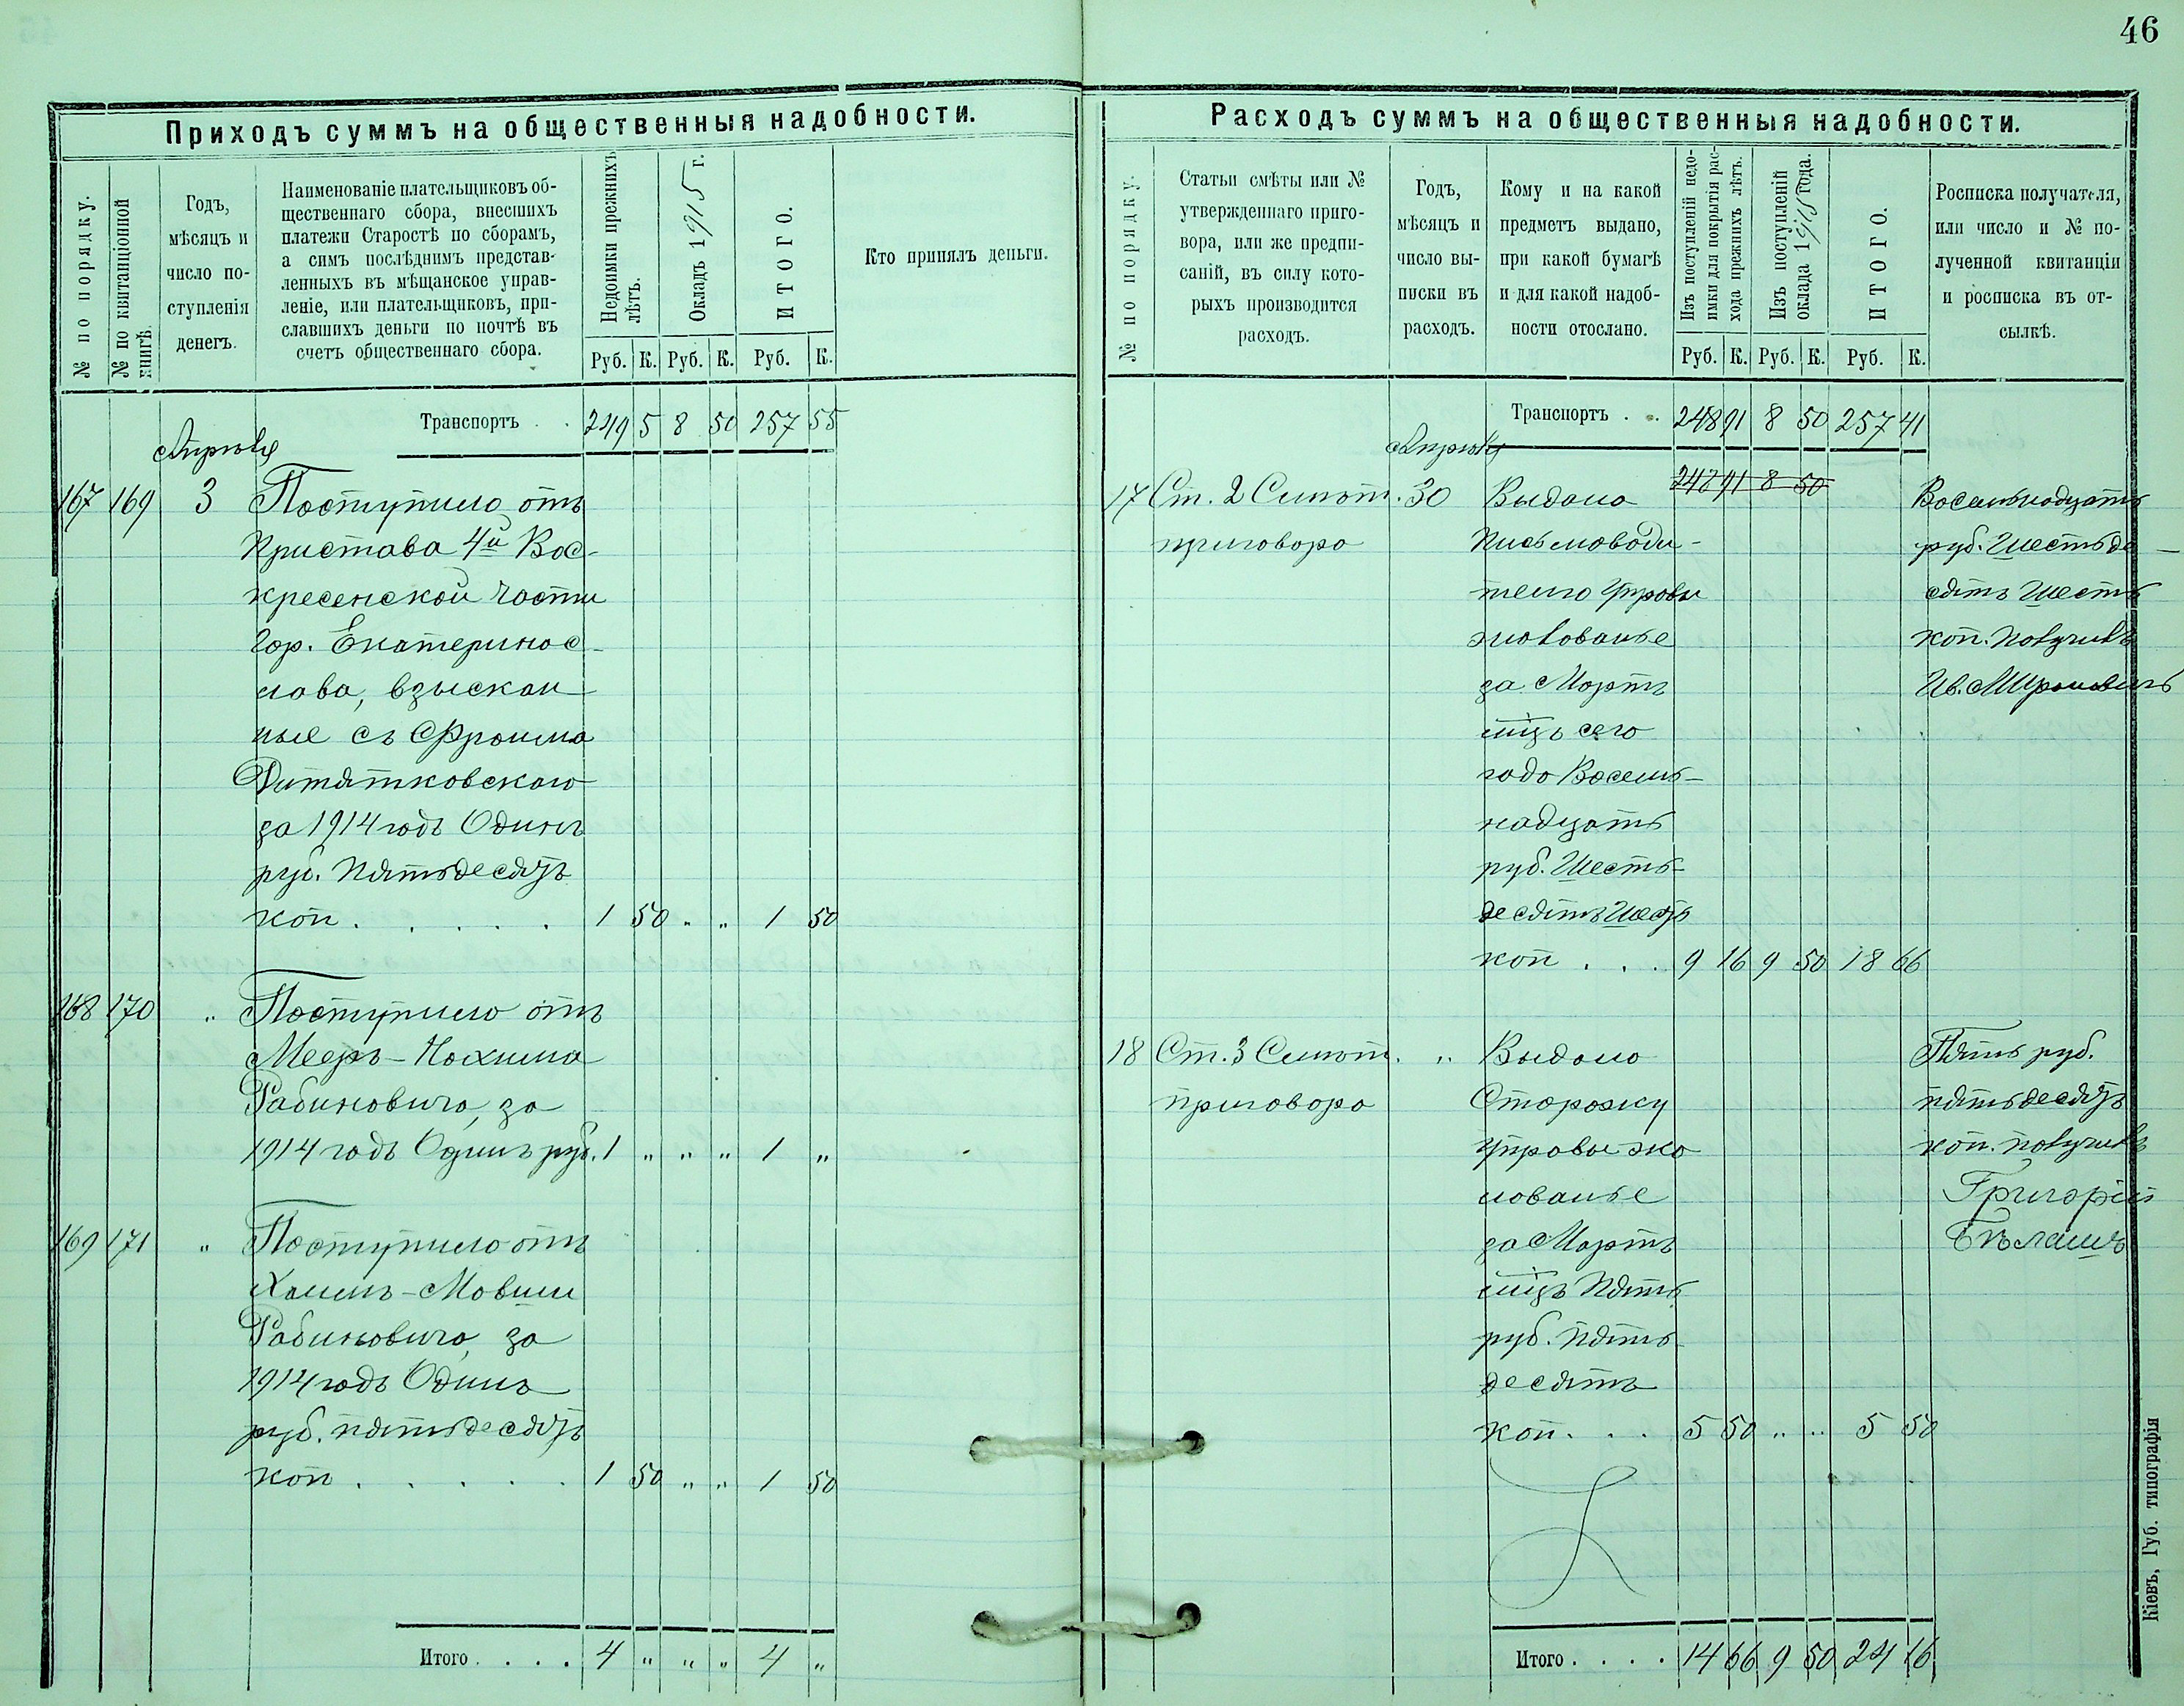 46
Приходъ суммъ на общественныя надобности.
№ по порядку.
№ по квитанціонной книгѣ.
Годъ,
мѣсяцъ и
число по-
ступленія
денегъ.
Наименованіе плательщиковъ об-
щественнаго сбора, внесшихъ
платежи Старостѣ по сборамъ,
а симъ послѣднимъ представ-
ленныхъ въ мѣщанское управ-
леніе, или плательщиковъ, при-
славшихъ деньги по почтѣ въ
счетъ общественнаго сбора.
Недоимки прежнихъ
лѣтъ.
Окладъ 1915 г.
ИТОГО.
Руб. К. Руб. К. Руб. К.
Кто принялъ деньги.
Транспортъ . . 249 5 8 50 257 55
Апрѣля
167 169 3 Поступило отъ
Пристава 4й Вос-
кресенской части
гор. Екатеринос-
лава, взыскан-
ные съ Фроима
Дитятковскаго
за 1914 годъ Одинъ
руб. пятьдесятъ
коп. . . . . 1 50 „ „ 1 50
168 170 „ Поступило отъ
Мееръ-Нохима
Рабиновича, за
1914 годъ Одинъ руб. 1 „ „ „ 1 „
169 171 „ Поступило отъ
Хаимъ-Мовши
Рабиновича, за
1914 годъ Одинъ
руб. пятьдесятъ
коп . . . . . 1 50 „ „ 1 50
Итого . . . . 4 „ „ „ 4 „
Расходъ суммъ на общественныя надобности.
№ по порядку.
Статьи смѣты или №
утвержденнаго приго-
вора, или же предпи-
саній, въ силу кото-
рыхъ производится
расходъ.
Годъ,
мѣсяцъ и
число вы-
писки въ
расходъ.
Кому и на какой
предметъ выдано,
при какой бумагѣ
и для какой надоб-
ности отослано.
Изъ поступленій недо-
имки для покрытія рас-
хода прежнихъ лѣтъ.
Изъ поступленій
оклада 1915 года.
ИТОГО.
Руб. К. Руб. К. Руб. К.
Росписка получателя,
или число и № по-
лученной квитанціи
и росписка въ от-
сылкѣ.
Транспортъ . . 248 91 8 50 257 41
Апрѣля
248 91 8 50
17 Ст. 2 Смѣт. 30 Выдано
приговора Письмоводи-
телю Управы
жалованье
за Мартъ
мцъ сего
года Восем-
надцать
руб. Шесть-
десятъ шесть
коп . . . 9 16 9 50 18 66
Восемьнадцать
руб. Шестьде-
сятъ шесть
коп. получилъ
Ив. Мироновичъ
18 Ст. 3 Смѣт. „ Выдано
приговора Сторожу
Управы жа
лованье
за Мартъ
мцъ Пять
руб. Пять-
десятъ
коп. . . 5 50 „ „ 5 50
Пять руб.
пятьдесятъ
коп. получилъ
Григорій
Итого . . . . 14 66 9 50 24 16
Кіевъ, Губ. типографія